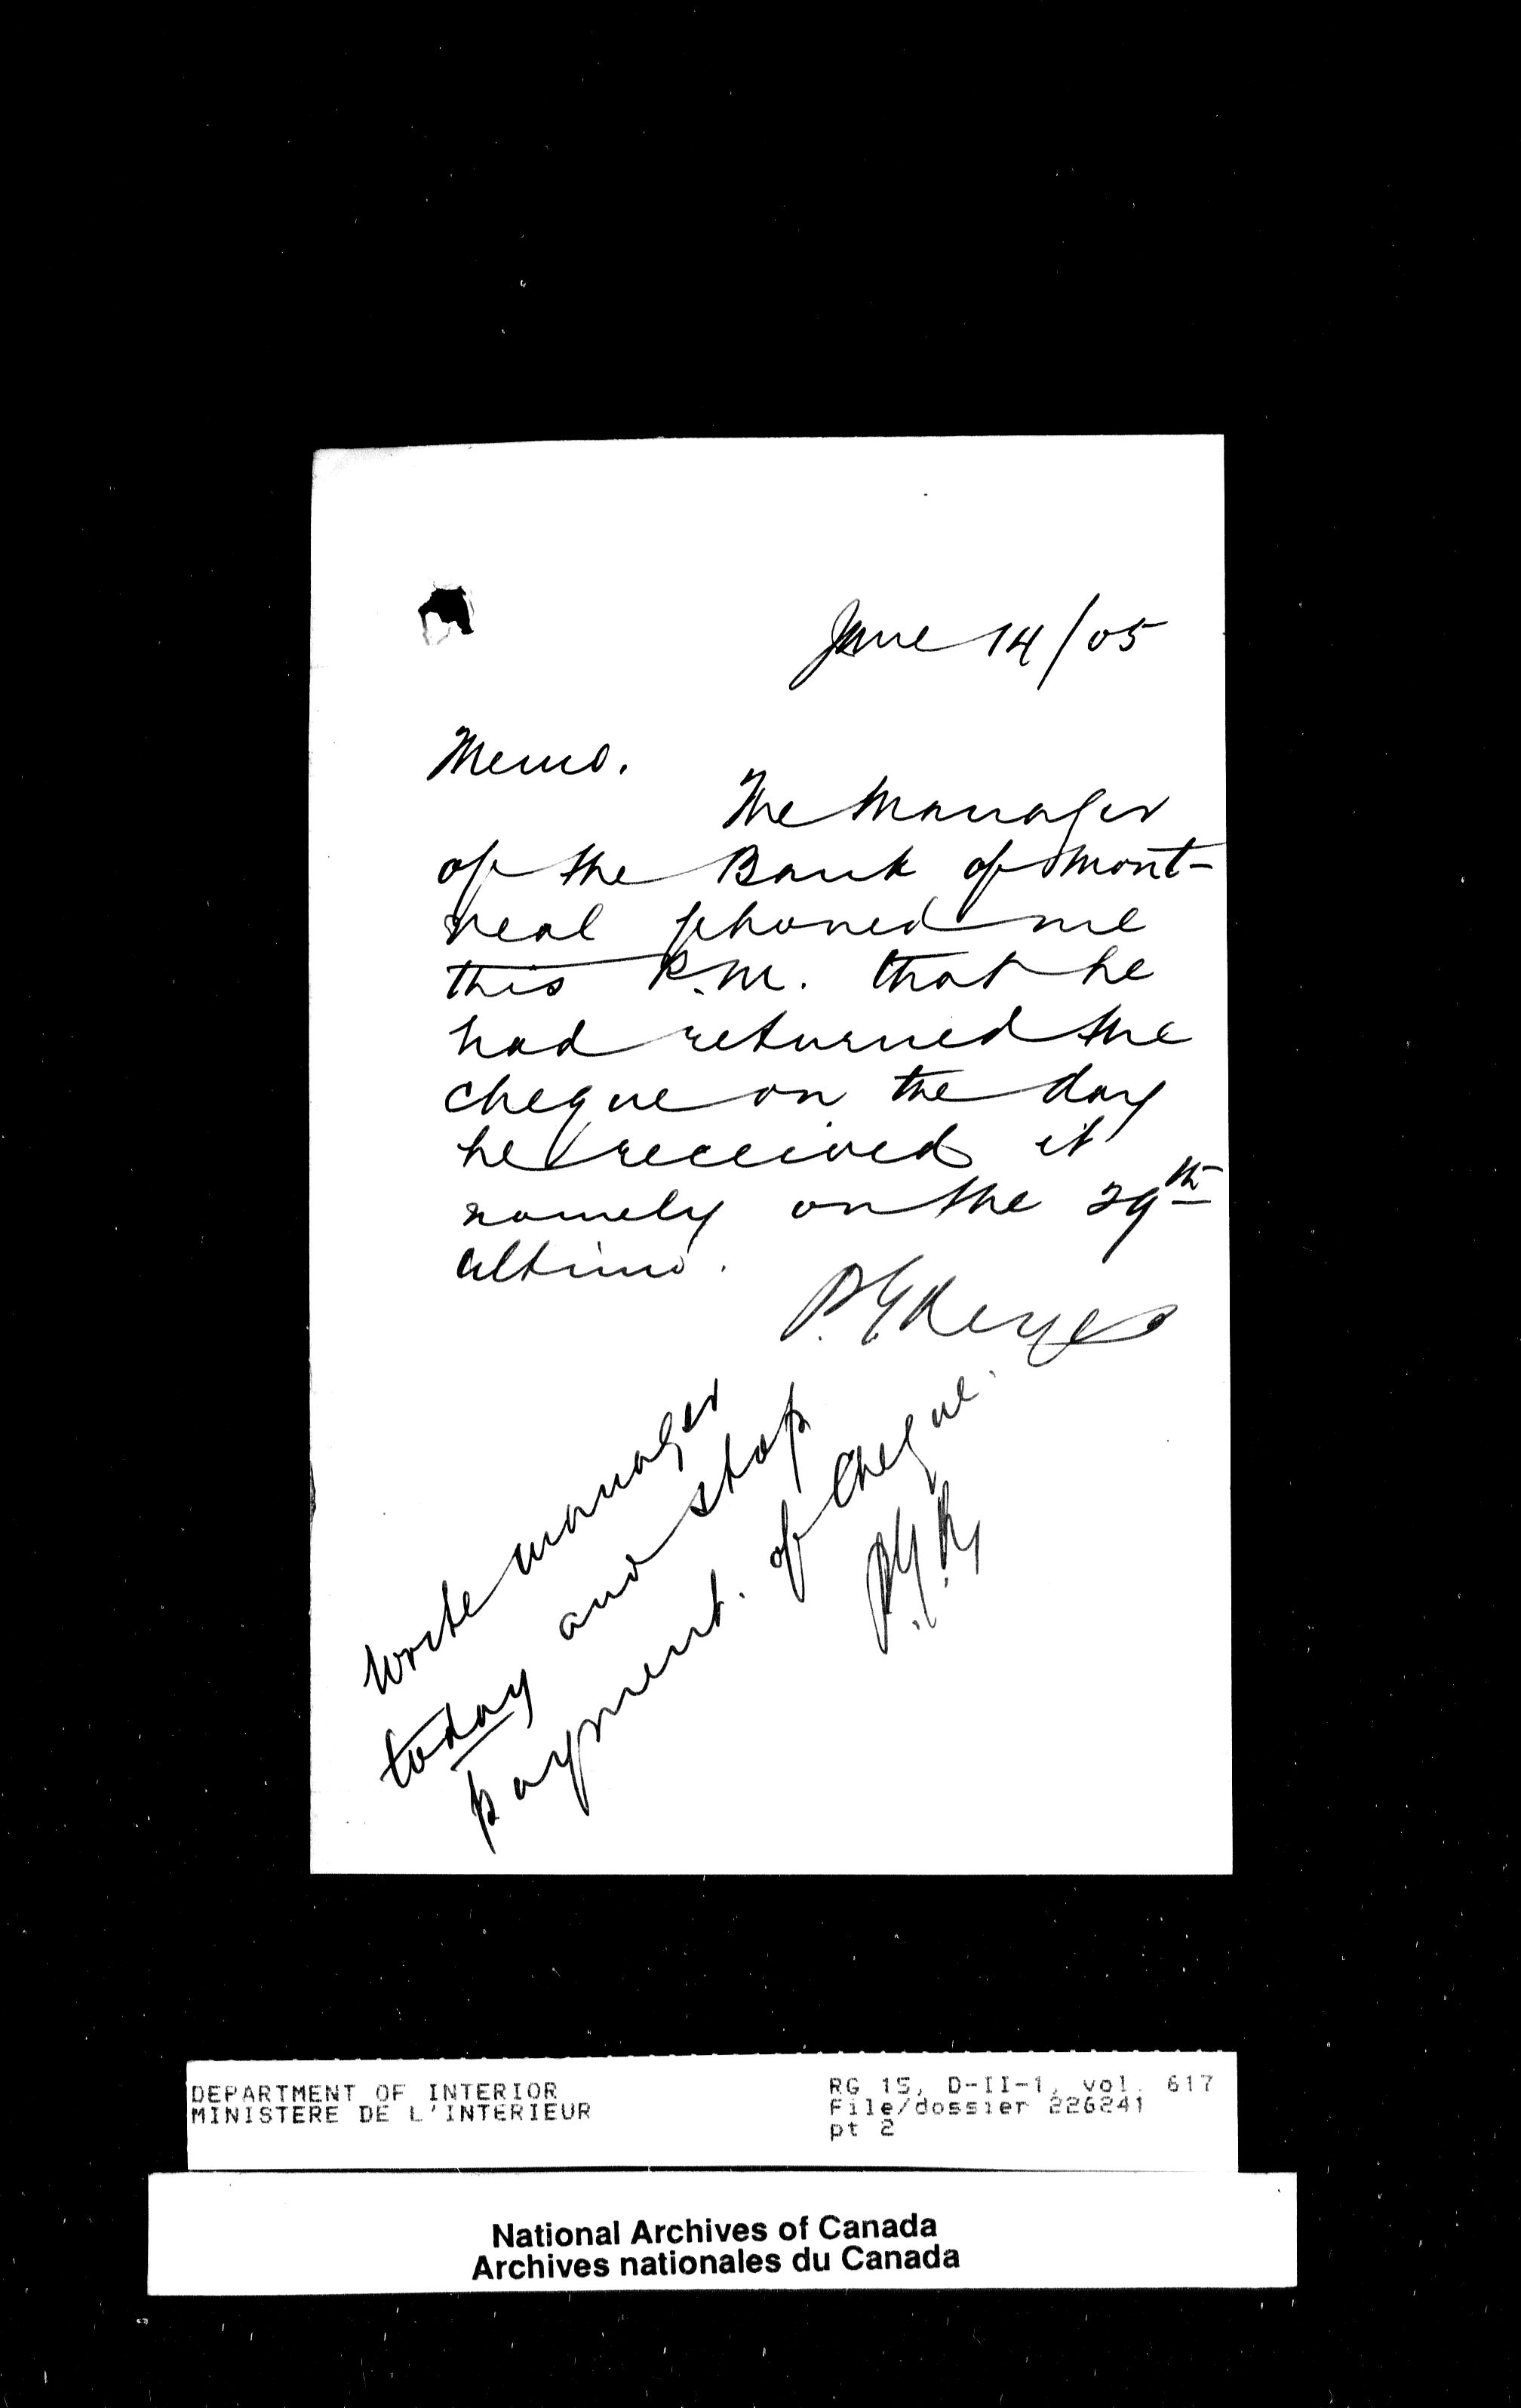 June 14/05
Memo.
The Manager
of the Bank of Mont-
real phoned me
this P.M. that he
had returned the
cheque on the day
he received it
namely on the 29th
ultimo.
P.G. Keyes
Write manager
today and stop
payment. of cheque.
P.G.K.
DEPARTMENT OF INTERIOR
MINISTERE DE L'INTERIEUR
RG 15, D-II-1, vol. 617
File/dossier 226241
pt 2
National Archives of Canada
Archives nationales du Canada